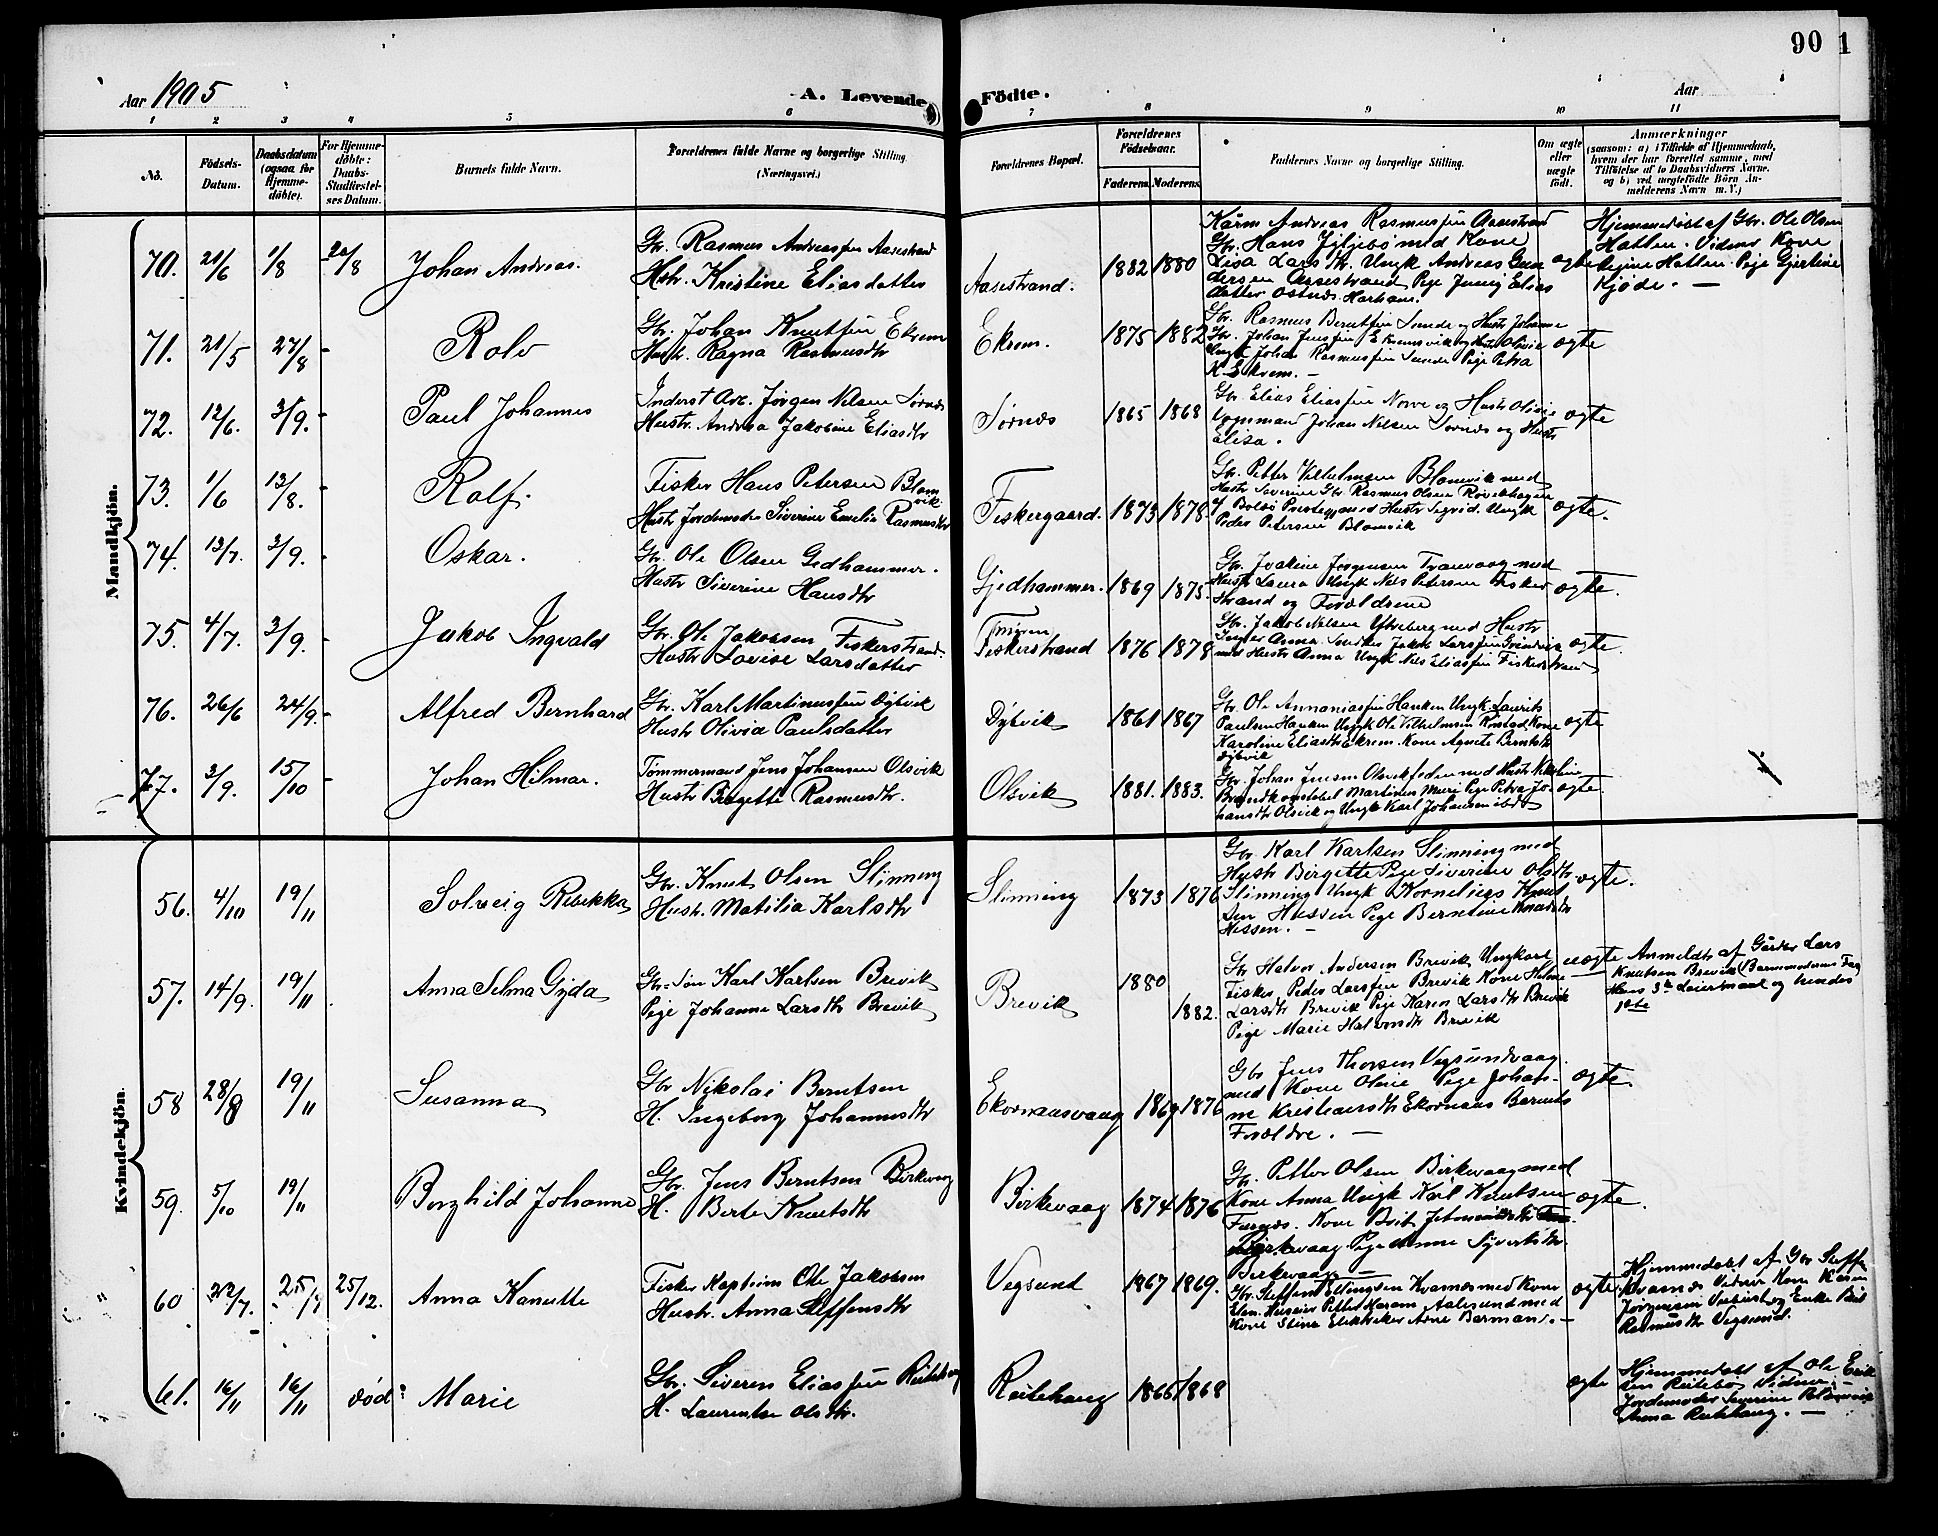 Aar 1905
A. Levende Födte.
Aar
90
1
1 2 3 4 5 6 7 8 9 10 11
No.
Födsels-Datum.
Daabsdatum (ogsaa for Hjemmedöbte).
For Hjemmedöbte: Daabs-Stadfæstelses Datum.
Barnets fulde Navn.
Forældrenes fulde Navne og borgerlige Stilling. (Næringsvei.)
Forældrenes Bopæl.
Forældrenes Födselsaar.
Faderens. Moderens.
Faddernes Navne og borgerlige Stilling.
Om ægte eller uægte födt.
Anmærkninger (saasom: a) i Tilfælde af Hjemmedaab, hvem der har forrettet samme, med Tilföielse af to Daabsvidners Navne, og b) ved uægtefödte Börn Anmelderens Navn m. V.)
Mandkjön.
70. 21/6 1/8 20/8 Johan Andreas.
Gbr. Rasmus Andreassen Aasestrand
Hstr. Kristine Eliasdatter
Aasestrand. 1882 1880
Kårm Andreas Rasmussen Aasestrand
Gbr. Hans med Kone
Lisa Larsdtr. Ungk Andreas Gun
dersen Aasestrand Pige Elias
datter Østnes Harham.
ægte
Hjemmedöbt af Gbr. Ole Olsen
Hatten. Vidner Kone
Regine Hatten. Pige Gjertine
Kjöde. —
71. 21/5 27/8 - Rolv
Gbr. Johan Knutsen Ekrem
Hust. Ragna Rasmusdtr
Ekrem. 1875 1882
Gbr. Rasmus Berntsen Sunde og Hustr Johanne
Gbr. Johan Jensen Ekremsvik og Hustr Olivia
Ungk Johan Rasmussen Sunde Pige Petra
K. Ekrem. —
ægte
72. 12/6. 3/9. - Paul Johannes
Inderst Arb. Jörgen Nilsen Sörnes
Hustr. Andrea Jakobine Eliasdtr
Sörnes 1865 1868
Gbr. Elias Eliassen Norve og Hustr Olivie
Vognmand Johan Nilsen Sörnes og Hustr
Elisa.
ægte
73. 1/6 13/8. - Rolf.
Fisker Hans Petersen Blom
vik.
Hustr Jordemoder Siverine Emelia Rasmusdtr
Fiskergaard. 1873 1878.
Gbr. Petter Vilhelmsen Blomvik med
Hustr Severine Gbr Rasmus Olsen Rövikhagen
af Bolsö Prestegj med Hustr Sigrid. Ungk
Peder Petersen Blomvik
ægte.
74. 13/7. 3/9. - Oskar.
Gbr. Ole Olsen Gedhammer.
Hustr Siverine Hansdtr
Gjedhammer. 1869 1875.
Gbr. Joakim Jörgensen Tranvaag med
Hustr Laura Ungk Nils Petersen Fisker
strand og Forældrene
ægte.
75. 4/7. 3/9. - Jakob Ingvald
Gbr. Ole Jakobsen Fiskerstrand.
Hustr Lovise Larsdatter
Fiskerstrand 1876 1878
Gbr. Jakob Nilsen Ytreberg med Hustr
Inger Anna. Snedker Jakob Larssen Grönvig
med Hustr Anna Ungk Nils Eliassen Fiskerstrand
ægte.
76. 26/6 24/9. - Alfred Bernhard
Gbr. Karl Martinussen Dybvik
Hustr Olivia Paulsdatter
Dybvik 1861 1867
Gbr. Ole Annaniassen Hanken Ungk. Laurits
Paulsen Hanken Ungk Ole Vilhelmsen Röstad Kone
Karoline Eliasdtr Ekrem. Kone Agnete Berntsdtr
Dybvik
ægte
77. 3/9. 15/10 - Johan Hilmar.
Tömmermand Jens Johansen Olsvik
Hustr Birgette Rasmusdtr.
Olsvik 1881. 1883.
Gbr. Johan Jensen Olsvik med Hustr Nikoline
Brandkonstabel Martinus Muri Pige Petra Jo-
hansdtr Olsvik og Ungk Karl Johansen ibd
ægte.
Kvindekjön.
56. 4/10 19/11 Solveig Rebekka
Gbr. Knut Olsen Slinning
Hust. Matilia Karlsdtr
Slinning 1873 1876
Gbr. Karl Karlsen Slinning med
Hustr Birgette Pige Siverine Olsdtr
Slinning Ungk Kornelius Knut
sen Hessen Pige Berntine Knutsdtr
Hessen. —
ægte.
57. 14/9. 19/11 Anna Selma Gyda
Gbr.-Sön Karl Karlsen Brevik
Pige Johanne Larsdtr Brevik
Brevik 1880 1882.
Gbr Halvor Andersen Brevik Ungkarl
Fisker Peder Larssen Brevik Kone
Larsdtr Brevik Pige Karen Larsdtr Brevik
Pige Marie Halvorsdtr Brevik
uægte
Anmeldt af Gårdbr Lars
Knutsen Brevik (Barnemoderens Far
Hans 3die Leiermaal og hendes
1ste
58 28/8 19/11 Susanna
Gbr Nikolai Berntsen
H. Ingeborg Johannesdtr
Ekornæsvaag 1869 1876
Gbr Jens Thorsen Vegsundvaag
med Kone Oline Pige Johan-
ne Kristiansdtr Ekornæs Barnets
Forældre. —
ægte.
59. 5/10 19/11 Borghild Johanne
Gbr. Jens Berntsen Birkevaag
H. Berte Knutsdtr
Birkevaag 1874 1876
Gbr. Petter Olsen Birkevaag med
Kone Anna Ungk Karl Knutsen
Furnes. Kone Brit
Birkevaag Pige Anne Sivertsdtr.
Birkevaag —
ægte.
60 22/7. 25/7 25/12. Anna Kanutte
Fisker Kaptein Ole Jakobsen
Hustr. Anna Steffensdtr
Vegsund 1867 1869.
Gbr. Steffen Ellingsen Kvamnes med Kone
Elen. Petter Haram Aalesund med
Kone Stine Elektriker Arne Barman. —
ægte
Hjemmedöbt af Gbr Steffen
Kvamnes Vidner Kone Karen
Jörgensen Vegsund og Enke Brit
Rasmusdtr Vegsund.
61. 16/11 16/11 död: Marie
Gbr. Siveren Eliassen Reitehaug
H. Laurentse Olsdtr.
Reitehaug 1866 1868
ægte
Hjemmedöbt af Ole Erik
sen Reitebö Vidner:
Jordemoder Severine Blomvik
Anna Reitehaug. —